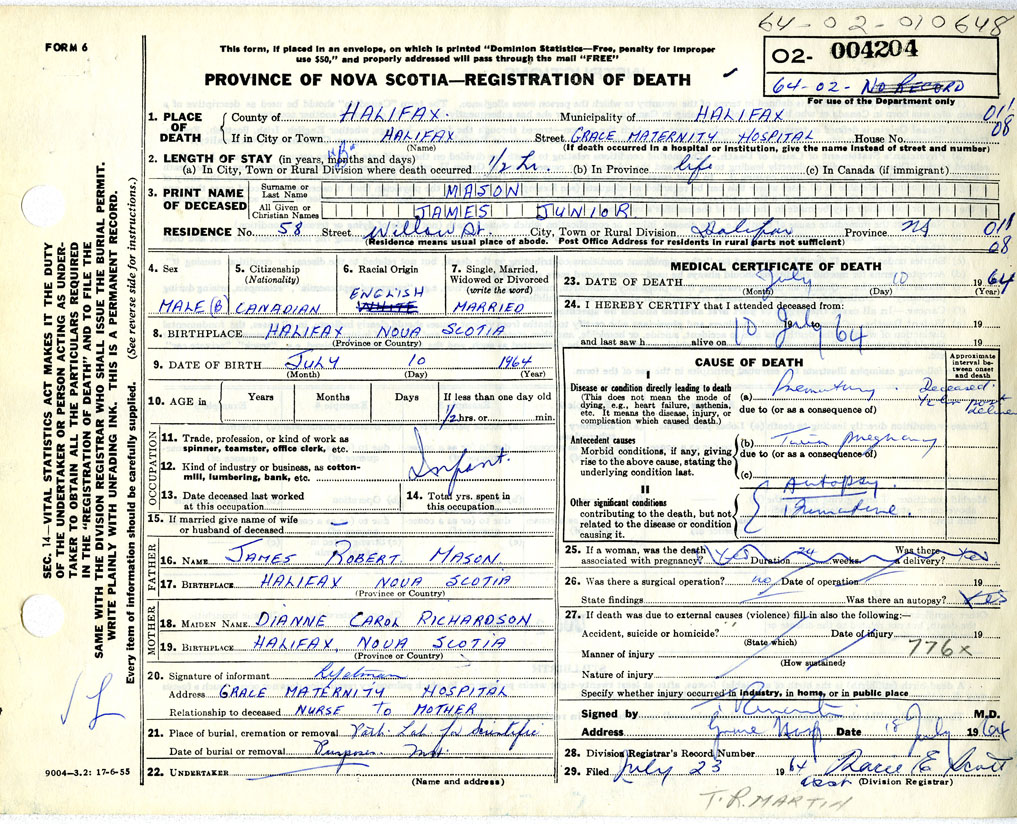 64-02-010648
FORM 6
This form, if placed in an envelope, on which is printed "Dominion Statistics—Free, penalty for improper
use $50," and properly addressed will pass through the mail "FREE"
PROVINCE OF NOVA SCOTIA—REGISTRATION OF DEATH
02- 004204
64-02- NO RECORD
For use of the Department only
1. PLACE OF DEATH
County of HALIFAX. Municipality of HALIFAX
If in City or Town HALIFAX Street GRACE MATERNITY HOSPITAL House No.
(Name) (If death occurred in a hospital or institution, give the name instead of street and number)
011
08
2. LENGTH OF STAY (in years, months and days)
(a) In City, Town or Rural Division where death occurred 1/2 hr. (b) In Province life (c) In Canada (if immigrant)
3. PRINT NAME OF DECEASED
Surname or Last Name MASON
All Given or Christian Names JAMES JUNIOR
RESIDENCE No. 58 Street Willow St. City, Town or Rural Division Halifax Province NS
(Residence means usual place of abode. Post Office Address for residents in rural parts not sufficient)
011
08
4. Sex MALE (B)
5. Citizenship (Nationality) CANADIAN
6. Racial Origin ENGLISH WHITE
7. Single, Married, Widowed or Divorced (write the word) MARRIED
8. BIRTHPLACE HALIFAX NOVA SCOTIA
(Province or Country)
9. DATE OF BIRTH JULY 10 1964
(Month) (Day) (Year)
10. AGE in Years Months Days If less than one day old
1/2 hrs. or min.
OCCUPATION
11. Trade, profession, or kind of work as
spinner, teamster, office clerk, etc.
Infant.
12. Kind of industry or business, as cotton-
mill, lumbering, bank, etc.
13. Date deceased last worked
at this occupation
14. Total yrs. spent in
this occupation
15. If married give name of wife
or husband of deceased —
FATHER
16. NAME JAMES ROBERT MASON
17. BIRTHPLACE HALIFAX NOVA SCOTIA
(Province or Country)
MOTHER
18. MAIDEN NAME DIANNE CAROL RICHARDSON
19. BIRTHPLACE HALIFAX, NOVA SCOTIA
(Province or Country)
20. Signature of informant
Address GRACE MATERNITY HOSPITAL
Relationship to deceased NURSE TO MOTHER
21. Place of burial, cremation or removal Path. Lab for Scientific
Date of burial or removal Purposes
22. UNDERTAKER
(Name and address)
MEDICAL CERTIFICATE OF DEATH
23. DATE OF DEATH July 10 1964
(Month) (Day) (Year)
24. I HEREBY CERTIFY that I attended deceased from:
10 July 64 19
and last saw h alive on 19
CAUSE OF DEATH
Approximate interval between onset and death
I
Disease or condition directly leading to death
(This does not mean the mode of
dying, e.g., heart failure, asthenia,
etc. It means the disease, injury, or
complication which caused death.)
(a) Prematurity Deceased 1/2 hr post
due to (or as a consequence of)
Antecedent causes
Morbid conditions, if any, giving
rise to the above cause, stating the
underlying condition last.
(b) Twin pregnancy
due to (or as a consequence of)
(c)
II
Other significant conditions
contributing to the death, but not
related to the disease or condition
causing it.
Autopsy.
25. If a woman, was the death
associated with pregnancy? Yes Duration 24 weeks Was there
a delivery? Yes
26. Was there a surgical operation? no Date of operation 19
State findings Was there an autopsy? Yes
27. If death was due to external causes (violence) fill in also the following:—
Accident, suicide or homicide? Date of injury 19
(State which)
Manner of injury
(How sustained)
776x
Nature of injury
Specify whether injury occurred in industry, in home, or in public place
Signed by M.D.
Address Grace Hosp Date 18 July 1964
28. Division Registrar's Record Number
29. Filed July 23 1964 E Scott
(Division Registrar)
T.R. MARTIN
SEC. 14—VITAL STATISTICS ACT MAKES IT THE DUTY
OF THE UNDERTAKER OR PERSON ACTING AS UNDER-
TAKER TO OBTAIN ALL THE PARTICULARS REQUIRED
IN THE "REGISTRATION OF DEATH" AND TO FILE THE
SAME WITH THE DIVISION REGISTRAR WHO SHALL ISSUE THE BURIAL PERMIT.
WRITE PLAINLY WITH UNFADING INK. THIS IS A PERMANENT RECORD.
Every item of information should be carefully supplied. (See reverse side for instructions.)
9004—3.2: 17-6-55